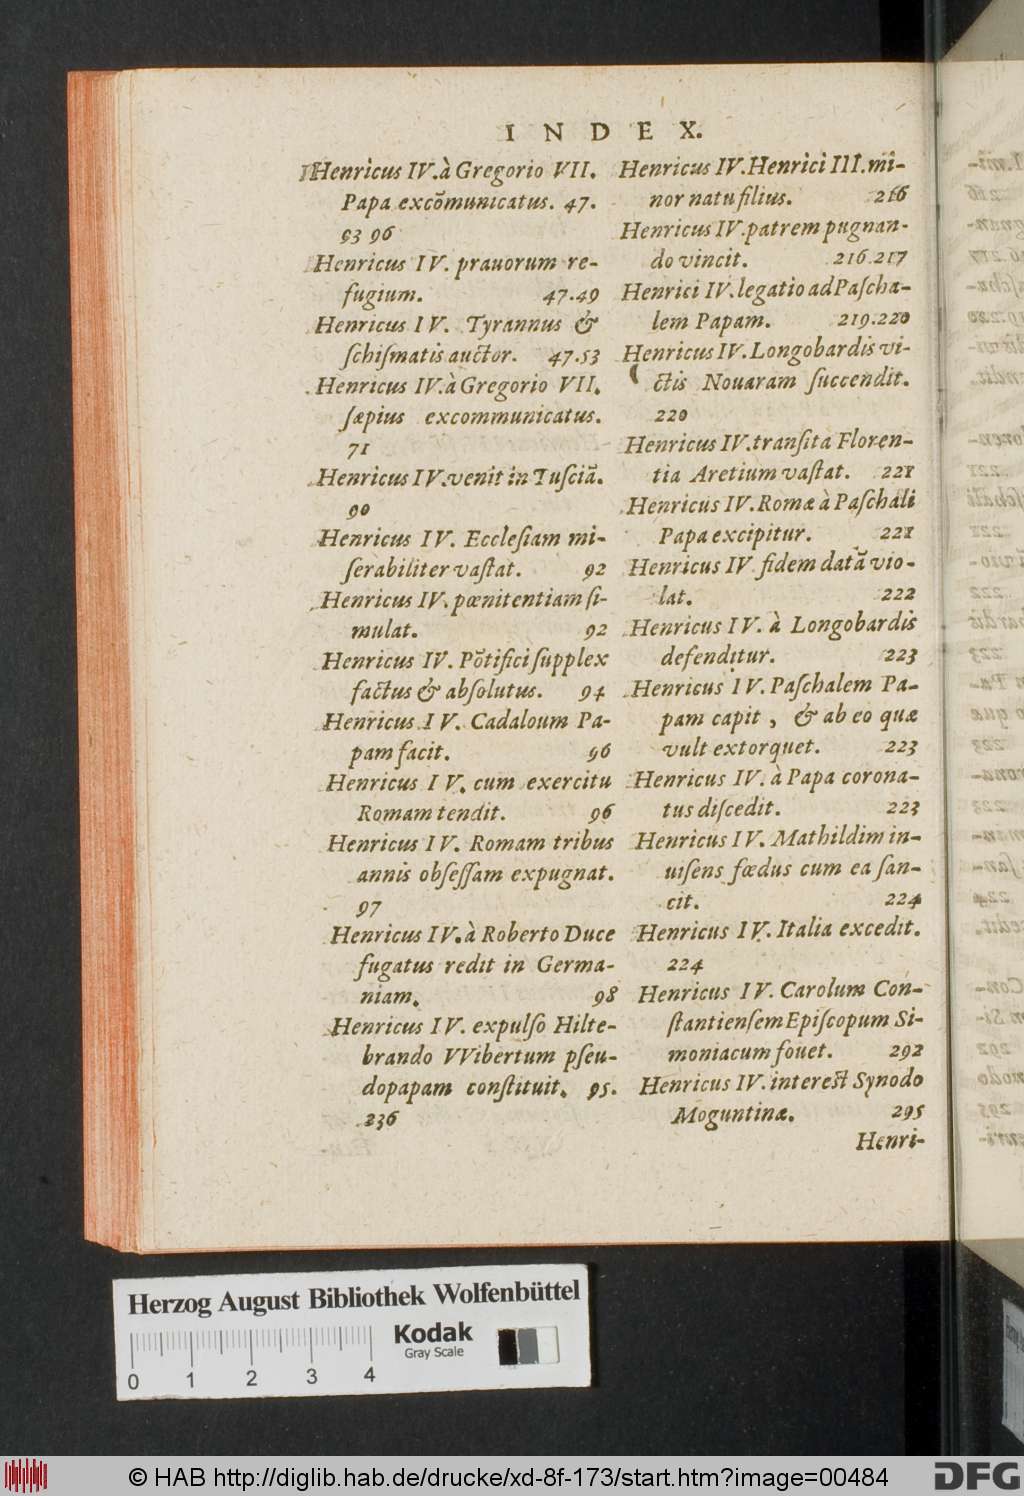 INDEX.
Henricus IV. à Gregorio VII.
Papa excõmunicatus. 47.
93 96
Henricus IV. prauorum re-
fugium. 47.49
Henricus IV. Tyrannus &
ſchiſmatis auctor. 47.53
Henricus IV. à Gregorio VII.
ſæpius excommunicatus.
71
Henricus IV. venit in Tuſciã.
90
Henricus IV. Eccleſiam mi-
ſerabiliter vaſtat. 92
Henricus IV. pœnitentiam ſi-
mulat. 92
Henricus IV. Põtifici ſupplex
factus & abſolutus. 94
Henricus IV. Cadaloum Pa-
pam facit. 96
Henricus IV. cum exercitu
Romam tendit. 96
Henricus IV. Romam tribus
annis obſeſſam expugnat.
97
Henricus IV. à Roberto Duce
fugatus redit in Germa-
niam. 98
Henricus IV. expulſo Hilte-
brando VVibertum pſeu-
dopapam conſtituit. 95.
236
Henricus IV. Henrici III. mi-
nor natu filius. 216
Henricus IV. patrem pugnan-
do vincit. 216.217
Henrici IV. legatio ad Paſcha-
lem Papam. 219.220
Henricus IV. Longobardis vi-
ctis Nouaram ſuccendit.
220
Henricus IV. tranſita Floren-
tia Aretium vaſtat. 221
Henricus IV. Romæ à Paſchali
Papa excipitur. 221
Henricus IV fidem datã vio-
lat. 222
Henricus IV. à Longobardis
defenditur. 223
Henricus IV. Paſchalem Pa-
pam capit, & ab eo quæ
vult extorquet. 223
Henricus IV. à Papa corona-
tus diſcedit. 223
Henricus IV. Mathildim in-
uiſens fœdus cum ea ſan-
cit. 224
Henricus IV. Italia excedit.
224
Henricus IV. Carolum Con-
ſtantienſem Epiſcopum Si-
moniacum fouet. 292
Henricus IV. intereſt Synodo
Moguntinæ. 295
Henri-
Herzog August Bibliothek Wolfenbüttel
Kodak
Gray Scale
0 1 2 3 4
© HAB http://diglib.hab.de/drucke/xd-8f-173/start.htm?image=00484
DFG